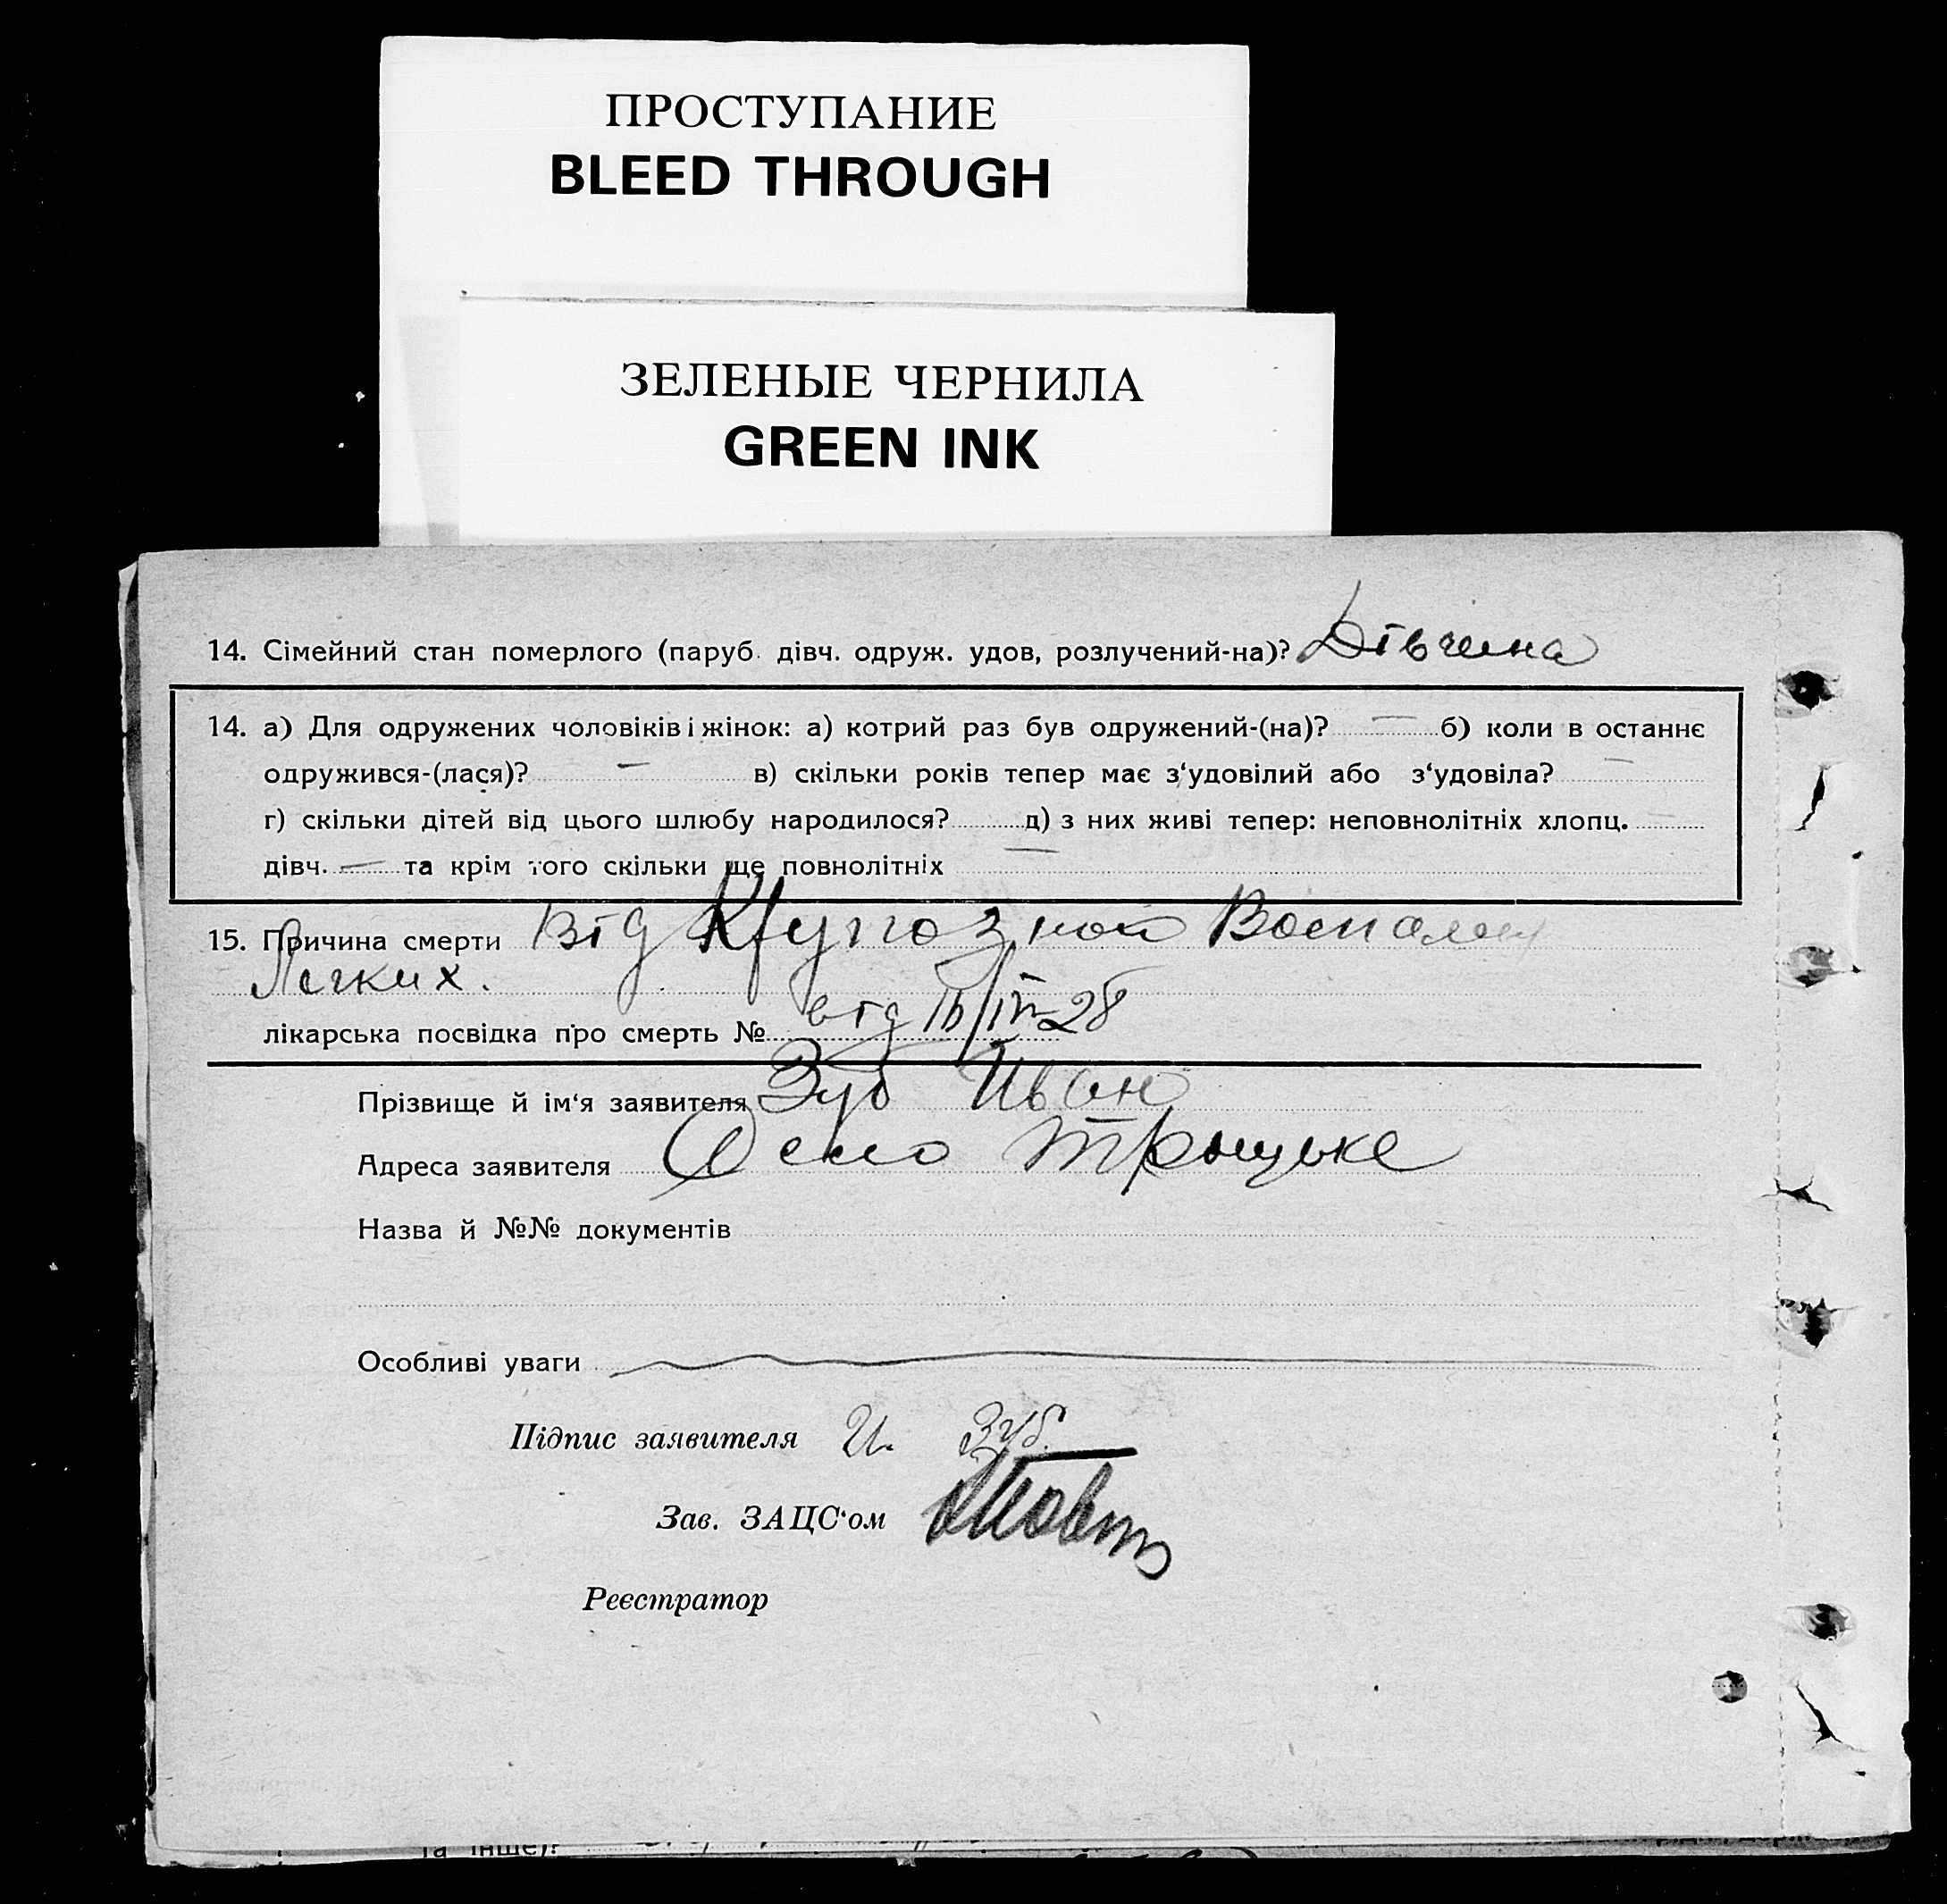 ПРОСТУПАНИЕ
BLEED THROUGH
ЗЕЛЕНЫЕ ЧЕРНИЛА
GREEN INK
14. Сімейний стан померлого (паруб. дівч. одруж. удов, розлучений-на)? Дівчина
14. а) Для одружених чоловіків і жінок: а) котрий раз був одружений-(на)? — б) коли в останнє
одружився-(лася)? — в) скільки років тепер має з‘удовілий або з‘удовіла? —
г) скільки дітей від цього шлюбу народилося? д) з них живі тепер: неповнолітніх хлопц. —
дівч. — та крім того скільки ще повнолітніх —
15. Причина смерти Від Крупозной Воспален
Легких.
лікарська посвідка про смерть № від 16/IV-28
Прізвище й ім‘я заявителя Зуб Иван
Адреса заявителя село Троицьке
Назва й №№ документів
Особливі уваги
Підпис заявителя И. Зуб.
Зав. ЗАЦС‘ом
Реєстратор
та інше)?